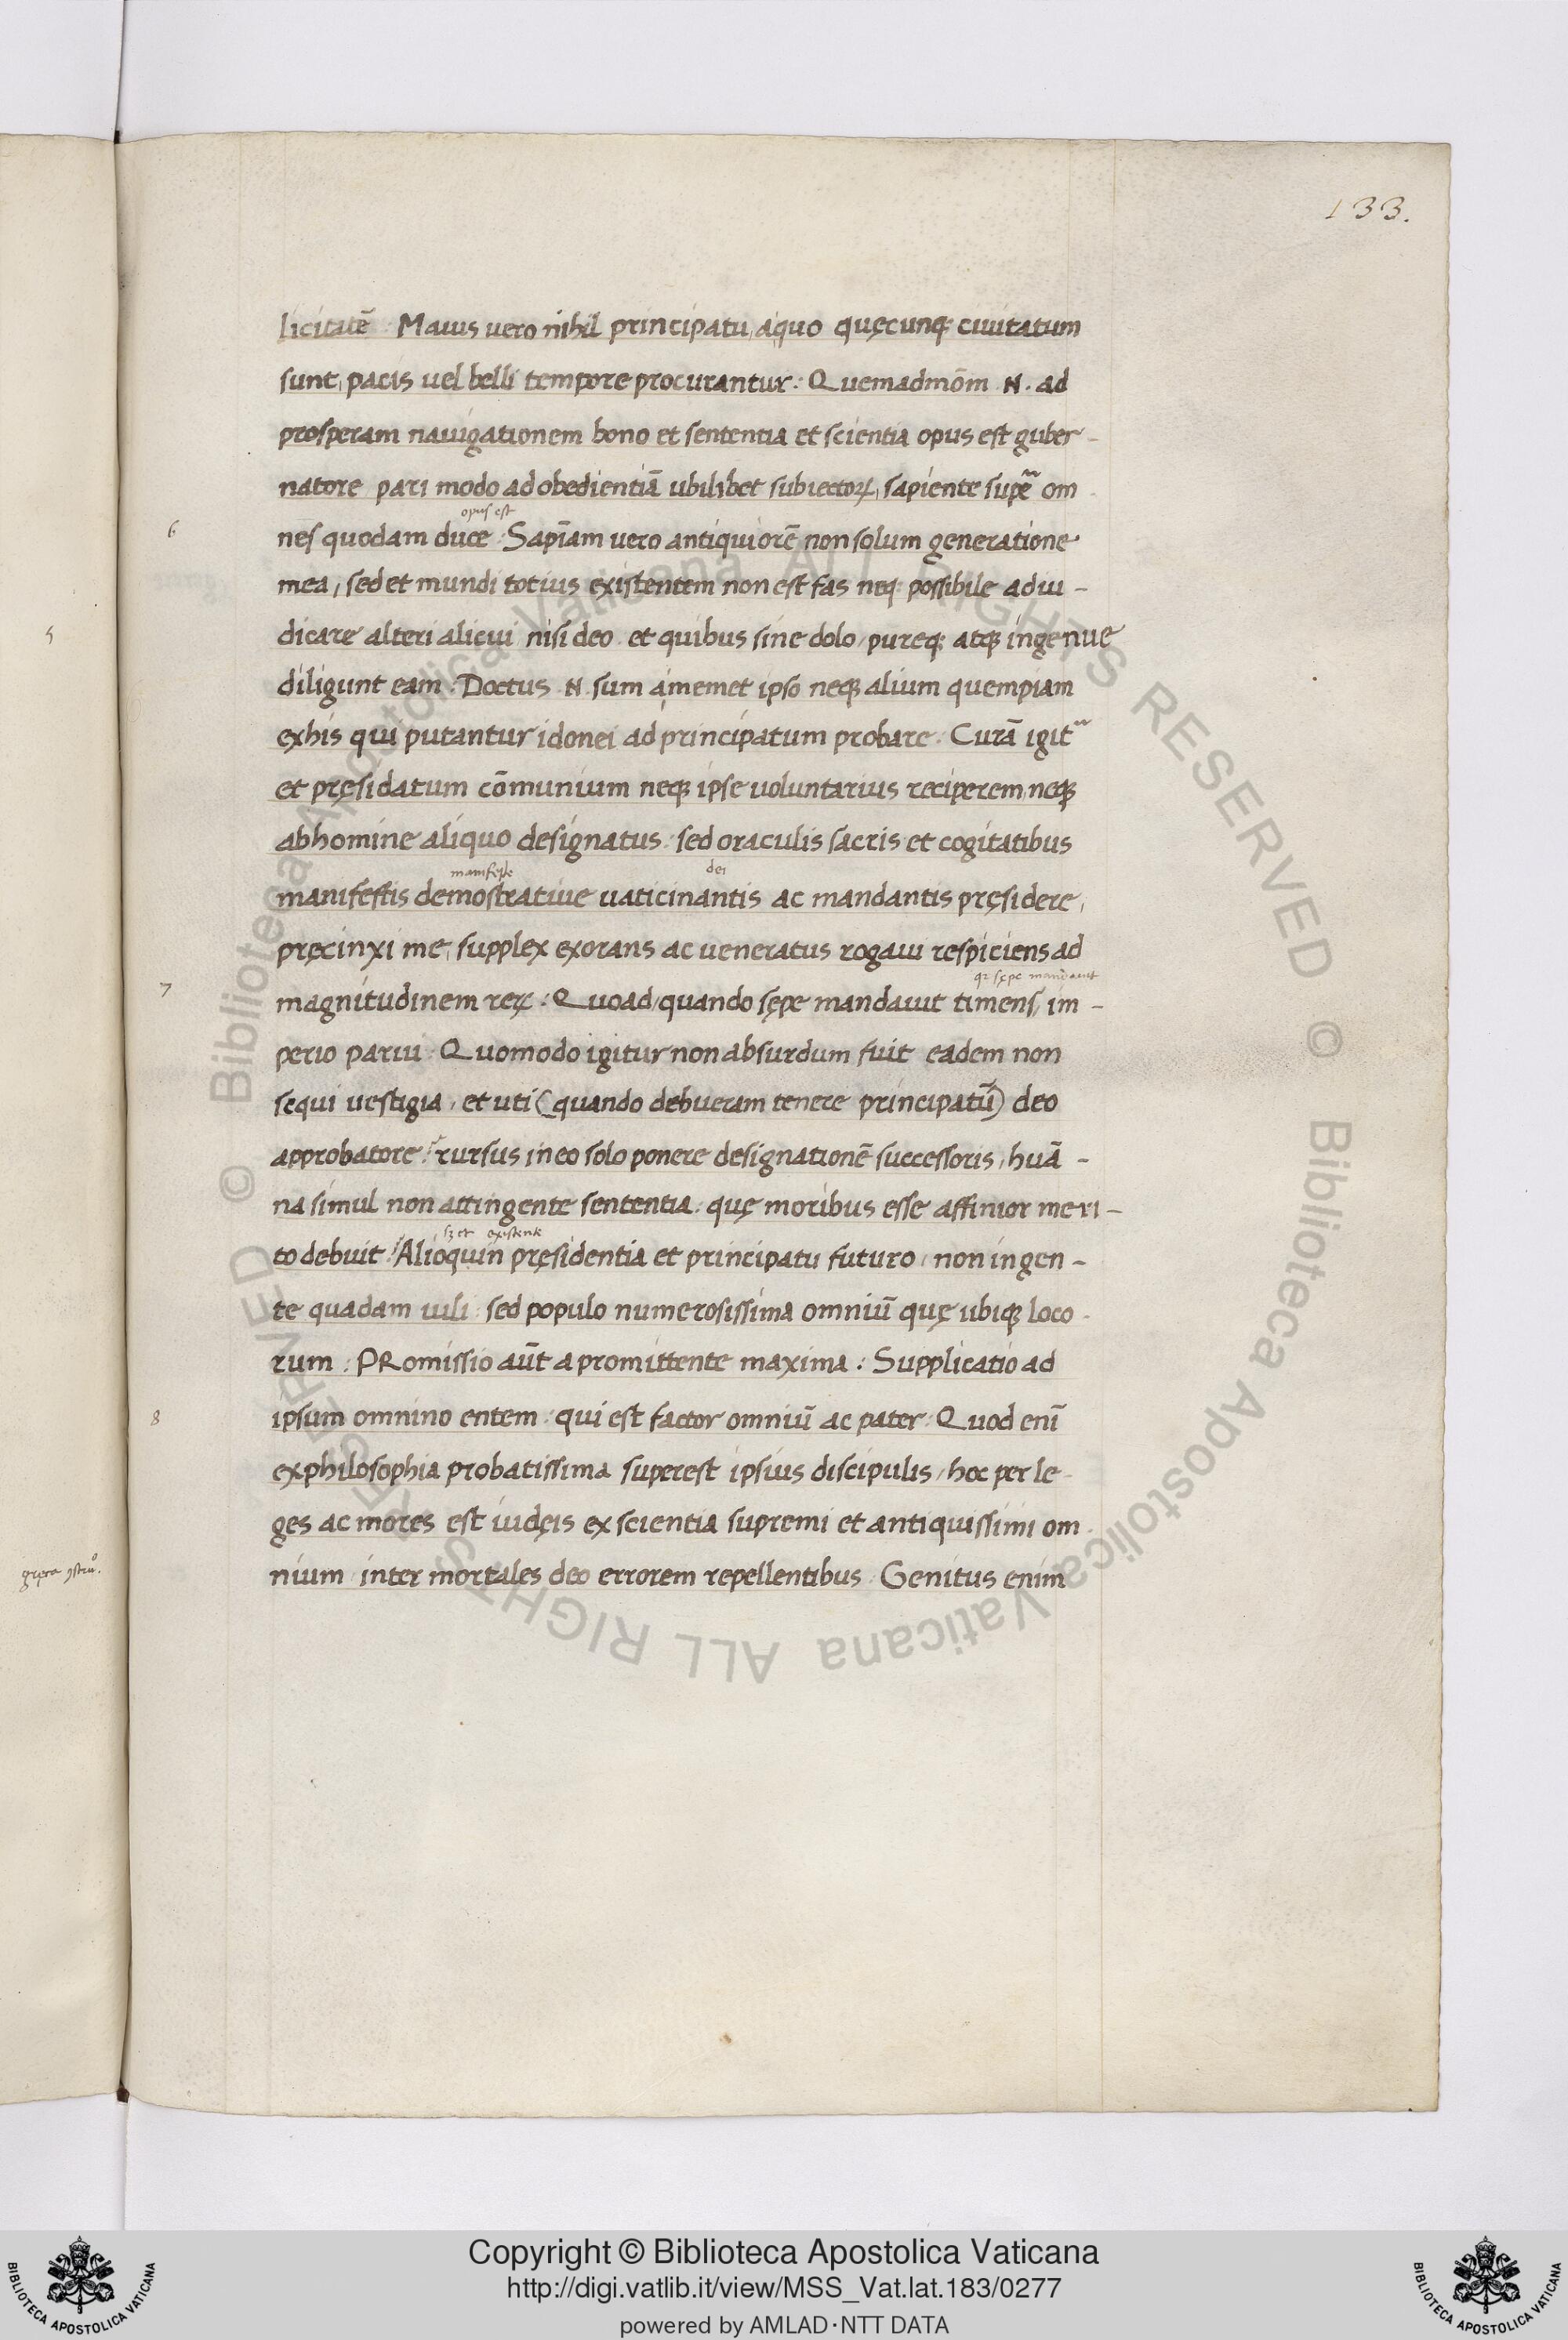 133.
licitatē. Maius uero nihil principatu, a quo quęcunq; ciuitatum
sunt, pacis uel belli tempore procurantur: Quemadmōm .N. ad
prosperam nauigationem bono et sententia et scientia opus est guber-
natore pari modo ad obedientiā ubilibet subiectoꝝ, sapiente supē om
opus est
6
nes quodam duce. Sapīam uero antiquiorē non solum generatione
mea, sed et mundi totius existentem non est fas neq; possibile adiu-
5
dicare alteri alicui nisi deo et quibus sine dolo, pureq; atq; ingenue
diligunt eam. Doctus .N. sum a memet ipso neq; alium quempiam
ex his qui putantur idonei ad principatum probare. Curā igit~
et pręsidatum cōmunium neq; ipse uoluntarius reciperem, neq;
ab homine aliquo designatus: sed oraculis sacris et cogitatibus
manifeste dei
manifestis demostratiue uaticinantis ac mandantis pręsidere,
pręcinxi me, supplex exorans ac ueneratus rogaui respiciens ad
qr sępe mandauit
7
magnitudinem reꝝ: Quoad, quando sępe mandauit timens, im-
perio parui. Quomodo igitur non absurdum fuit eadem non
sequi uestigia, et uti (quando debueram tenere principatū) deo
approbatore: rursus in eo solo ponere designationē successoris, huā-
na simul non attingente sententia: quę moribus esse affinior meri-
sꝫ et existente
to debuit: Alioquin pręsidentia et principatu futuro, non in gen-
te quadam uili: sed populo numerosissima omniū quę ubiq; loco-
rum: PRomissio aūt a promittente maxima: Supplicatio ad
8
ipsum omnino entem: qui est factor omniū ac pater. Quod enī
ex philosophia probatissima superest ipsius discipulis, hoc per le-
ges ac mores est iudęis ex scientia supremi et antiquissimi om-
nium inter mortales deo errorem repellentibus. Genitus enim
© Biblioteca Apostolica Vaticana ALL RIGHTS RESERVED © Biblioteca Apostolica Vaticana ALL RIGHTS RESERVED
Copyright © Biblioteca Apostolica Vaticana
http://digi.vatlib.it/view/MSS_Vat.lat.183/0277
powered by AMLAD·NTT DATA
BIBLIOTECA APOSTOLICA VATICANA
BIBLIOTECA APOSTOLICA VATICANA